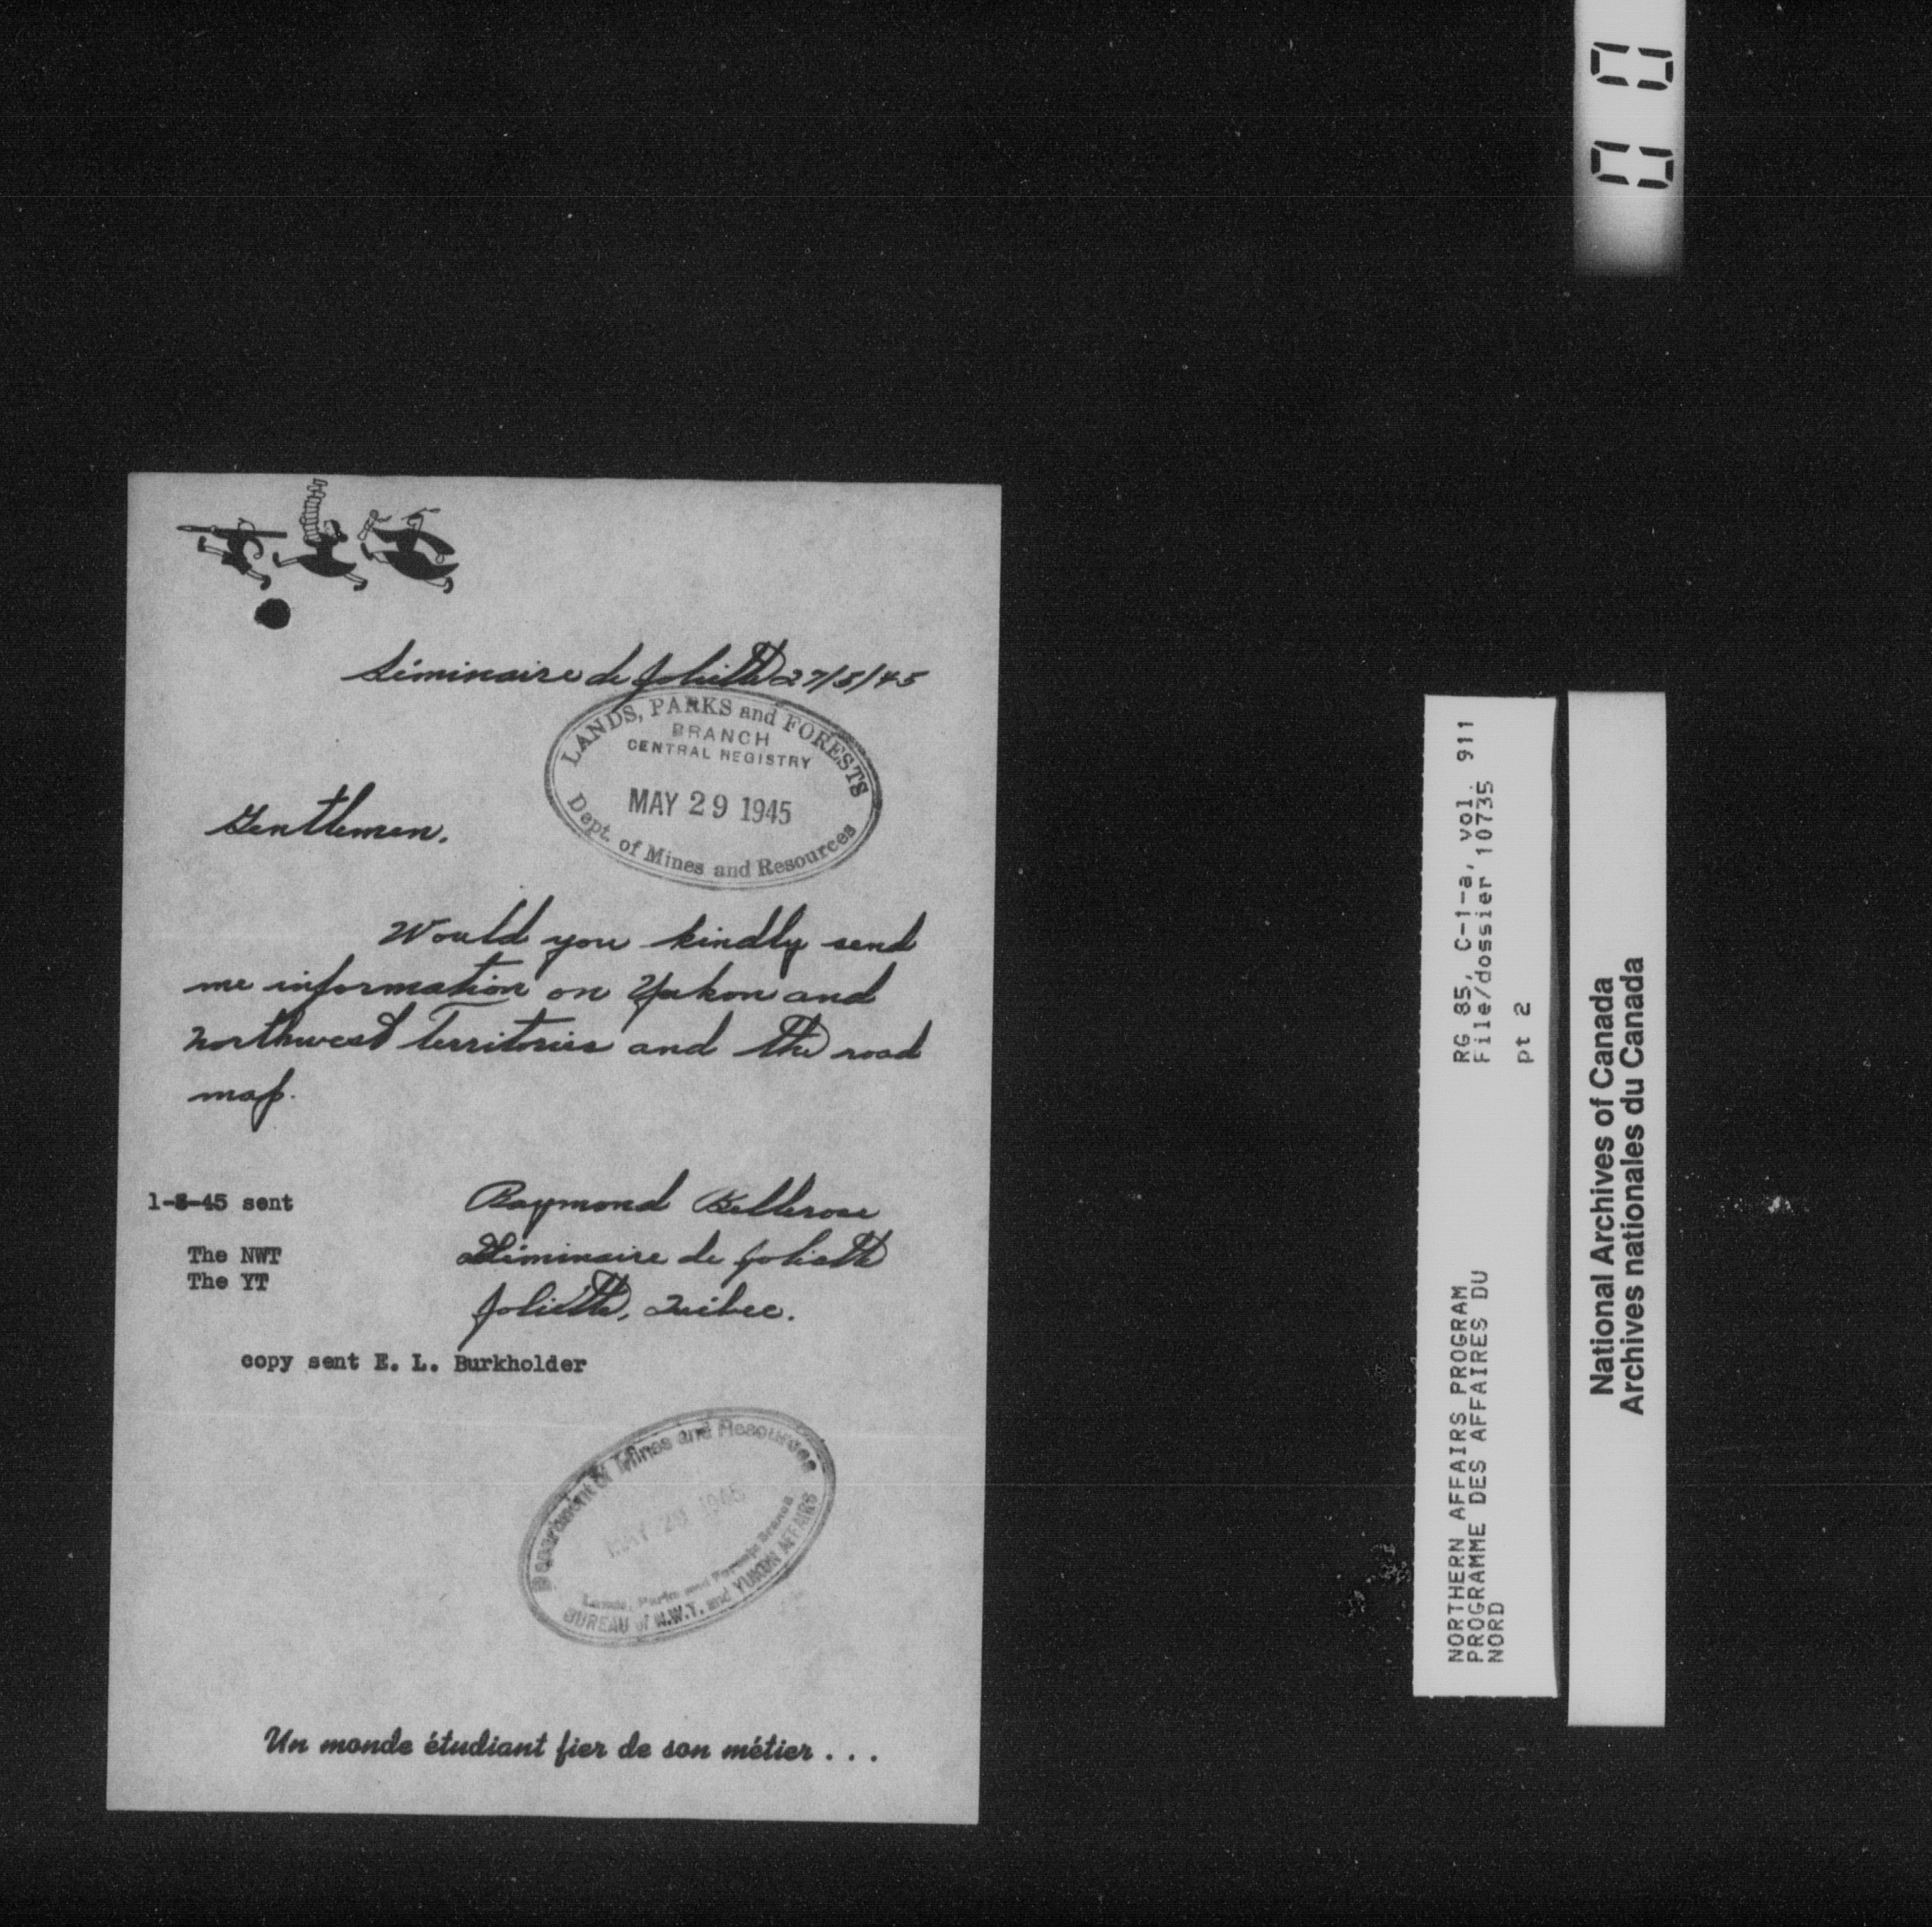 Séminaire de Joliette 27/5/45
LANDS, PARKS and FORESTS
BRANCH
CENTRAL REGISTRY
MAY 29 1945
Dept. of Mines and Resources
Gentlemen.
Would you kindly send
me information on Yukon and
Northwest Territories and the road
map.
1-6-45 sent
The NWT
The YT
Raymond Bellerose
Séminaire de Joliette
Joliette, Québec.
copy sent E. L. Burkholder
Department of Mines and Resources
MAY 29 1945
Lands, Parks and Forests Branch
BUREAU of N.W.T. and YUKON AFFAIRS
Un monde étudiant fier de son métier...
RG 85, C-1-a, vol. 911
File/dossier 10735
pt 2
NORTHERN AFFAIRS PROGRAM
PROGRAMME DES AFFAIRES DU
NORD
National Archives of Canada
Archives nationales du Canada